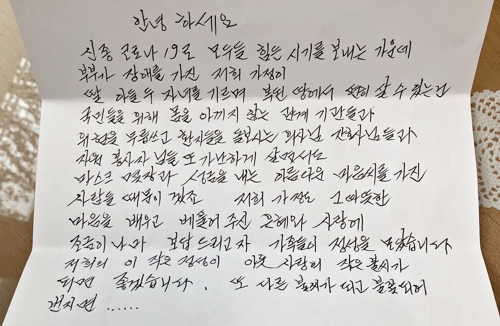 안녕하세요
신종 코로나 19로 모두들 힘든 시기를 보내는 가운데
부부가 장애를 가진 저희 가정이
딸 아들 두 자녀를 기르며 복된 땅에서 편히 살 수 있는건
국민들을 위해 몸을 아끼지 않는 관계 기관들과
위험을 무릅쓰고 환자들을 돌보시는 의사님 간호사님들과
자원 봉사자 님들 또 가난하게 살면서도
마스크 몇장과 성금을 내는 아름다운 마음씨를 가진
사람들 때문이 겠죠 저희 가정도 그 따뜻한
마음을 배우고 베풀어 주신 은혜와 사랑에
조금이나마 보답 드리고자 가족들이 정성을 모았습니다
저희의 이 작은 정성이 이웃 사랑의 작은 불씨가
되면 좋겠습니다. 또 다른 불씨가 되고 불꽃되어
번지면 ......